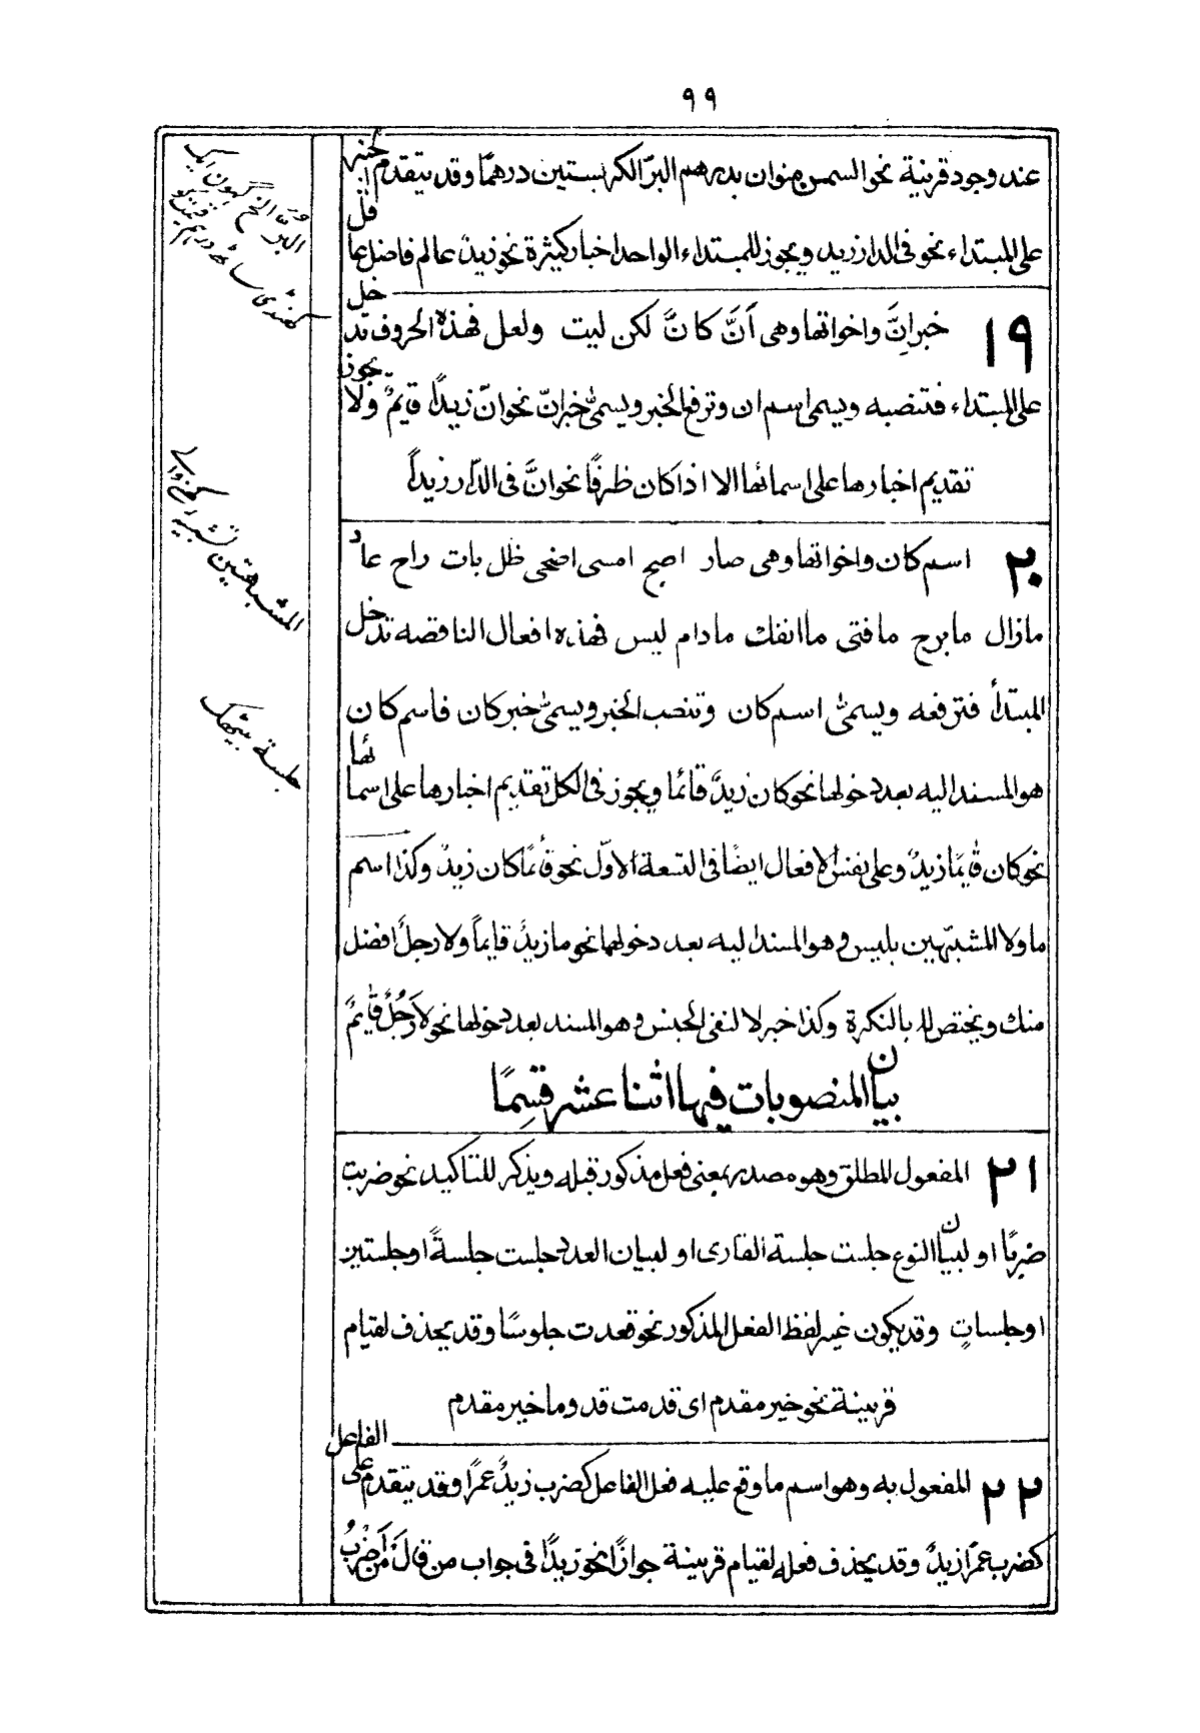 ٩٩
عند وجود قرينة نحو السمن منوان بدرهم البرّ الكر بستين درهمًا وقد يتقدم الخبر
على المبتداء نحو فى الدار زيد ويجوز للمبتداء الواحد اخبار كثيرة نحو زيدٌ عالم فاضل عاقل
١٩ خبر اِنَّ واخواتها وهى اَنَّ كانَّ لكن ليت ولعل فهذه الحروف تدخل
على المبتداء فتنصبه ويسمى اسم ان وترفع الخبر ويسمّٰى خبر انّ نحو انّ زيدًا قايمٌ ولا يجوز
تقديم اخبارها على اسمائها الا اذا كان ظرفًا نحو انَّ فى الدّار زيداً
٢٠ اسم كان واخواتها وهى صار اصبح امسى اضحى ظل بات راح عاد
مازال مابرح مافتى ماانفك مادام ليس فهذه افعال الناقصه تدخل
المبتدأ فترفعه ويسمّٰى اسم كان وتنصب الخبر ويسمّٰى خبر كان فاسم كان
هو المسند اليه بعد دخولها نحو كان زيدٌ قائما ويجوز فى الكل تقديم اخبارها على اسمائها
نحو كان قايمًا زيدٌ وعلى نفس الافعال ايضًا فى التسعة الاوّل نحو قائمًا كان زيدٌ وكذا اسم
ماولا المشبّهتين بليس وهو المسند اليه بعد دخولهما نحو مازيدٌ قايماً ولارجلٌ افضل
منك ويختص لا بالنكرة وكذا خبر لا لنفى الجنس وهو المسند بعد دخولها نحو لارَجُلٌ قايمٌ
بيان المنصوبات فيها اثنا عشر قِسمًا
٢١ المفعول المطلق وهو مصدر بمعنى فعل مذكور قبله ويذكر للتاكيد نحو ضربت
ضربًا او لبيان النوع جلست جلسة القارى او لبيان العدد جلست جلسةً او جلستين
او جلساتٍ وقد يكون غير لفظ الفعل المذكور نحو قعدت جلوسًا وقد يحذف لقيام
قرينة نحو خير مقدم اى قدمت قدوما خير مقدم
٢٢ المفعول به وهو اسم ماوقع عليه فعل الفاعل كضرب زيدٌ عمرًا وقد يتقدم على الفاعل
كضرب عمرًا زيدٌ وقد يحذف فعله لقيام قرينة جوازًا نحو زيدًا فى جواب من قال مَن اَضْرِبُ
البُرّ الخ گیہوں ایک
المشبهتين تشبیہ
جلسة بیٹھک